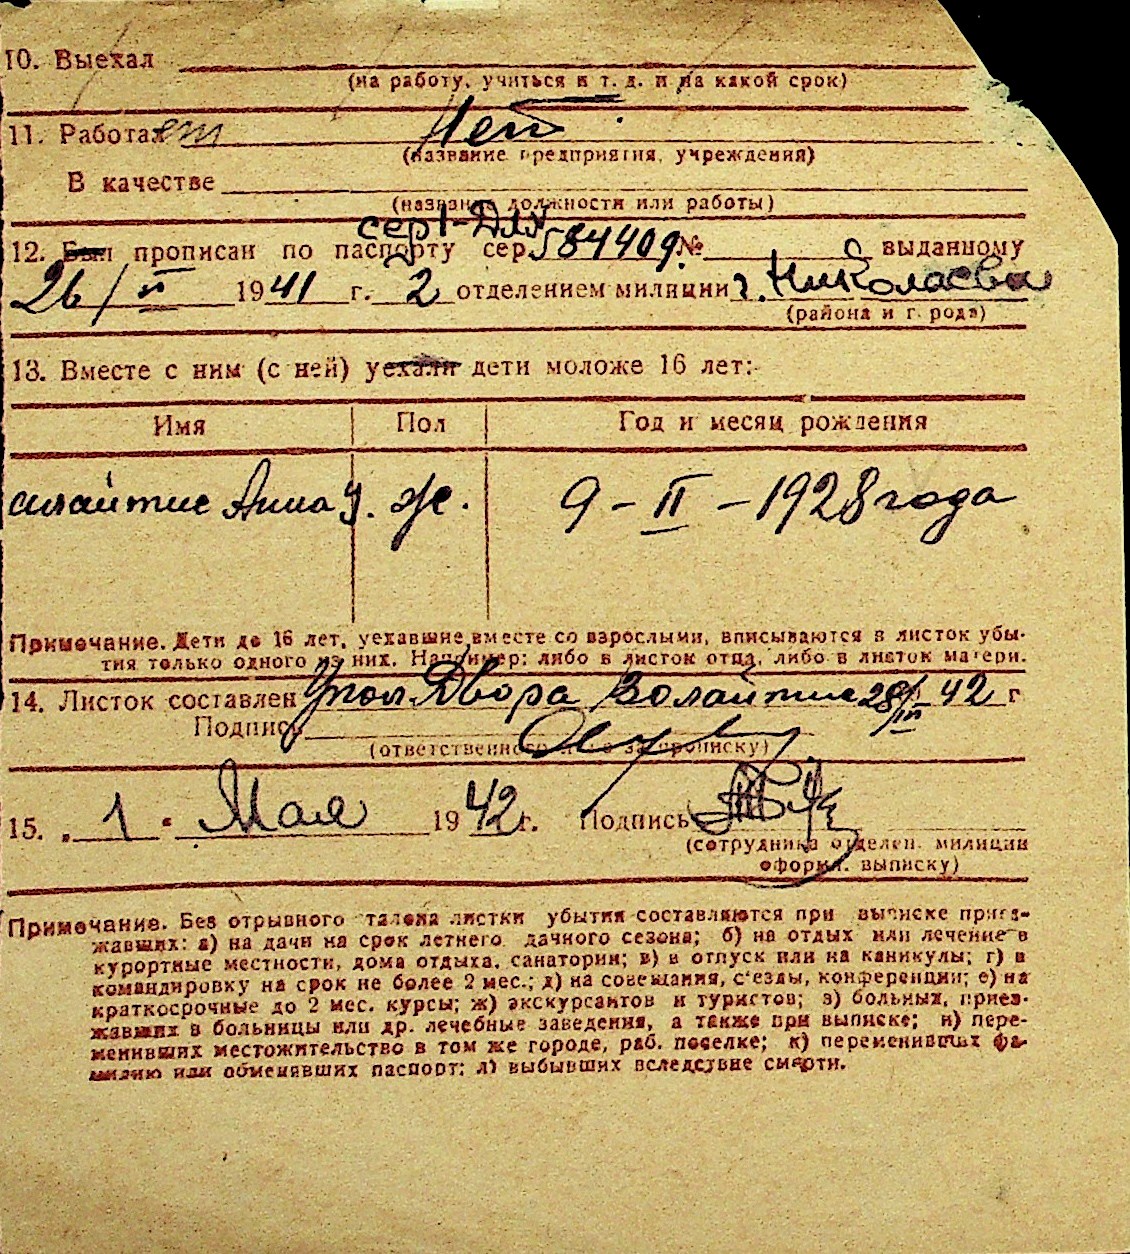 10. Выехал
(на работу, учиться и т. д. и на какой срок)
11. Работает Нет
(название предприятия, учреждения)
В качестве
(название должности или работы)
сер I-ДЛХ
12. Был прописан по паспорту сер. 584409 № выданному
26/II 1941 г. 2 отделением милиции г. Николаева
(района и города)
13. Вместе с ним (с ней) уехали дети моложе 16 лет:
Имя Пол Год и месяц рождения
Анна У. ж. 9-II-1928 года
Примечание. Дети до 16 лет, уехавшие вместе со взрослыми, вписываются в листок убы-
тия только одного из них. Например: либо в листок отца, либо в листок матери.
14. Листок составлен Упол Двора 28/III-42 г
Подпись
(ответственного лица за прописку)
15. „1" Мая 1942 г. Подпись
(сотрудника отделен. милиции
оформ. выписку)
Примечание. Без отрывного талона листки убытия составляются при выписке приез-
жавших: а) на дачи на срок летнего дачного сезона; б) на отдых или лечение в
курортные местности, дома отдыха, санатории; в) в отпуск или на каникулы; г) в
командировку на срок не более 2 мес.; д) на совещания, с'езды, конференции; е) на
краткосрочные до 2 мес. курсы; ж) экскурсантов и туристов; з) больных, приез-
жавших в больницы или др. лечебные заведения, а также при выписке; и) пере-
менивших местожительство в том же городе, раб. поселке; к) переменивших фа-
милию или обменявших паспорт; л) выбывших вследствие смерти.